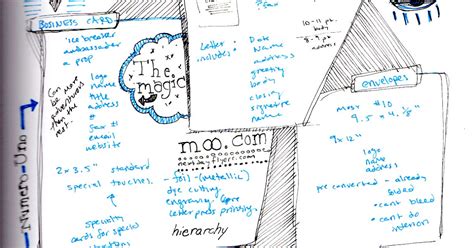 BUSINESS CARD
ice breaker
ambassador
a prop
logo
name
title
address
#
fax #
email
website
Can be more
than the
rest.
The
magic
Letter
includes:
Date
Name
address
greeting
body
closing
signature
name
10-11 pt.
body
8-9 pt.
address
envelopes
most #10
9.5 x 4 1/8"
9x12"
logo
name
address
pre converted - already
folded
• can't bleed
• can't do
interior
moo.com
nextdayflyers.com
2 x 3.5" standard
special touches:
- foil (metallic)
dye cutting
engraving
letterpress printing
specialty
cards for special
hierarchy